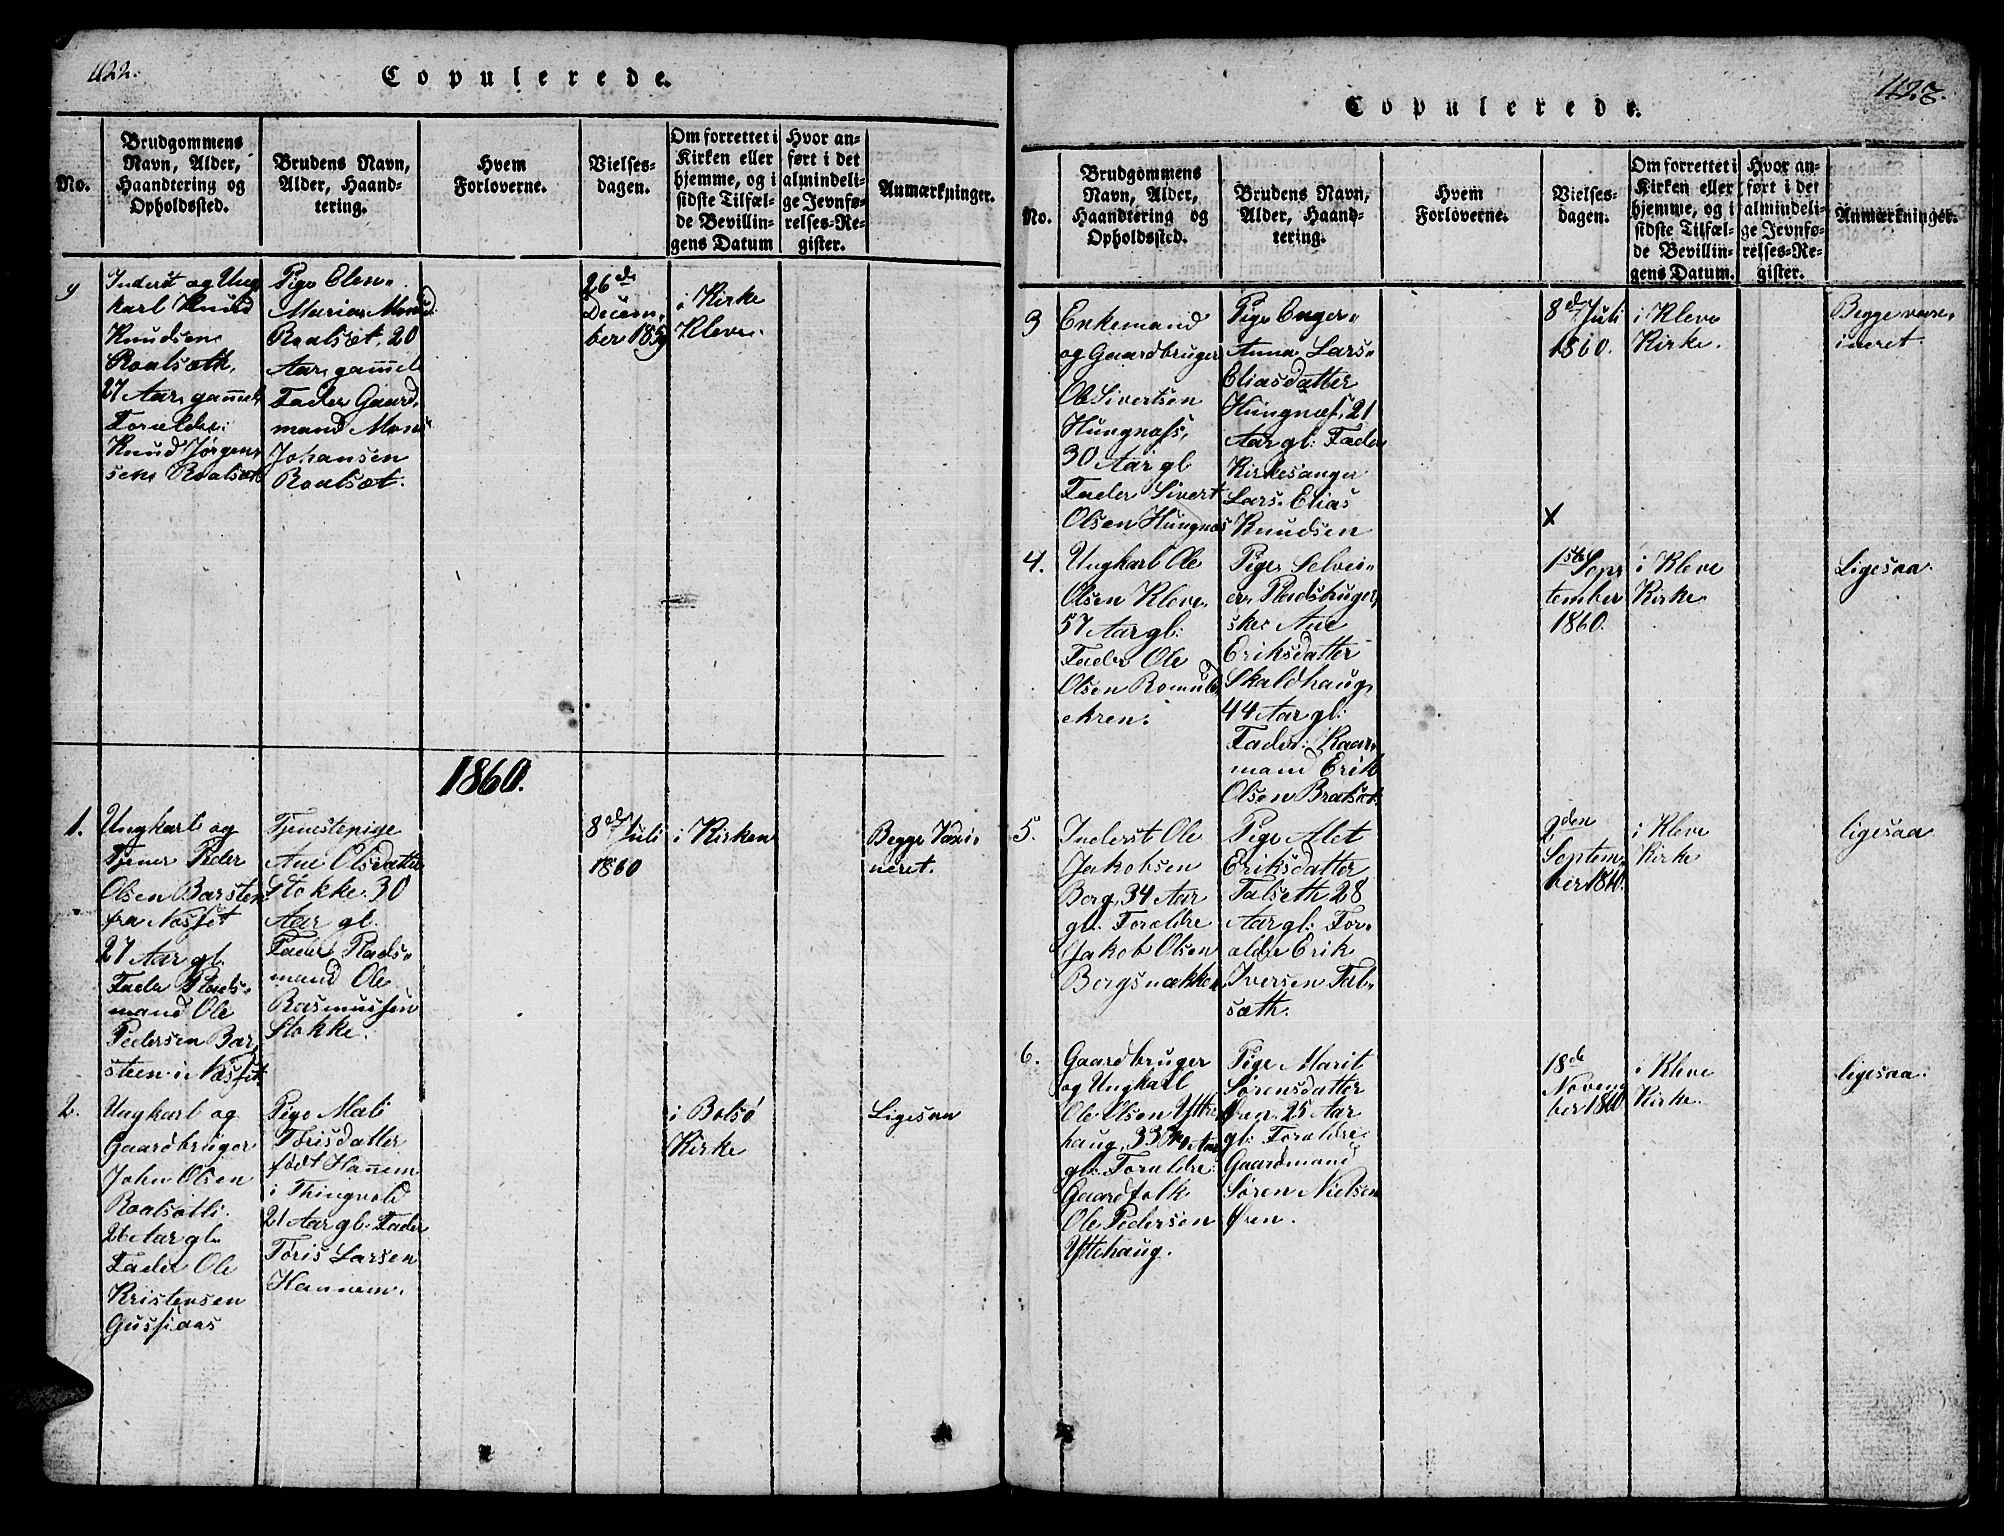 422.
Copulerede.
No.
Brudgommens
Navn, Alder,
Haandtering og
Opholdssted.
Brudens Navn,
Alder, Haand-
tering.
Hvem
Forloverne.
Vielses-
dagen.
Om forrettet i
Kirken eller
hjemme, og i
sidste Tilfæl-
de Bevillin-
gens Datum
Hvor an-
ført i det
almindeli-
ge Jevnfø-
relses-Re-
gister.
Anmærkninger.
9
Inderst og Ung
karl Knud
Knudsen
Roalsæth,
27 Aar gammel
Forældre:
Knud Jørgen
sen Roalsæt
Pige Olen
Maria Mons
Roalsæt, 20
Aar gammel
Fader Gaard
mand Mons
Johansen
Roalsæt.
26de
Decem
ber 1859
i Kirke
Kleve.
1860.
1.
Ungkarl og
Tjener Peder
Olsen Barsten
fra Næsset
27 Aar gl.
Fader Plads
mand Ole
Pedersen Bar
steen i Næsset
Tjenestepige
Ane Olsdatter
Stokke 30
Aar gl.
Fader Plads
mand Ole
Rasmussen
Stokke.
8de Juli
1860
i Kirken
Begge Vaxi
neret.
2.
Ungkarl og
Gaardbruger
John Olsen
Roalsætli.
26 Aar gl.
Fader Ole
Kristensen
Gusjaas
Pige Mali
Tørisdatter
født Hanem
i Thingvold
21 Aar gl. Fader
Tøris Larsen
Hannem.
i Bolsø
Kirke
Ligesaa
423.
Copulerede.
No.
Brudgommens
Navn, Alder,
Haandtering og
Opholdssted.
Brudens Navn,
Alder, Haand-
tering.
Hvem
Forloverne.
Vielses-
dagen.
Om forrettet i
Kirken eller
hjemme, og i
sidste Tilfæl-
de Bevillin-
gens Datum.
Hvor an-
ført i det
almindeli-
ge Jevnfø-
relses-Re-
gister.
Anmærkninger.
3
Enkemand
og Gaardbruger
Ole Sivertsen
Hungnæss,
30 Aar gl
Fader Sivert
Olsen Hungnæs
Pige Enger
Anna Lars
Eliasdatter
Hungnæs, 21
Aar gl: Fader
Kirkesanger
Lars Elias
Knudsen
8de Juli
1860.
x
i Kleve
Kirke.
Begge vaxi
ineret.
4.
Ungkarl Ole
Olsen Kleve
57 Aar gl:
Fader Ole
Olsen Romuld
ekren.
Pige Selvei
er Pladsbruger
ske Ane
Eriksdatter
Skaldhaug
44 Aar gl:
Fader: Kaar
mand Erik
Olsen Bralsæt.
1ste Sep
tember
1860.
i Kleve
Kirke
Ligesaa
5.
Inderst Ole
Jakobsen
Borg, 34 Aar
gl. Forældre
Jakob Olsen
Borgsnækken
Pige Alet
Eriksdatter
Talseth 28
Aar gl: For
ældre Erik
Iversen Tal
sæth.
9den
Septem
ber 1860.
i Kleve
Kirke
ligesaa
6.
Gaardbruger
og Ungkarl
Ole Olsen Yttre
haug, 33 Aar
gl: Forældre
Gaardfolk
Ole Pedersen
Yttehaug.
Pige Marit
Sørensdatter
Øren, 25 Aar
gl: Forældre
Gaardmand
Søren Nielsen
Øren.
18de
Novem
ber 1860
i Kleve
Kirke.
ligesaa.